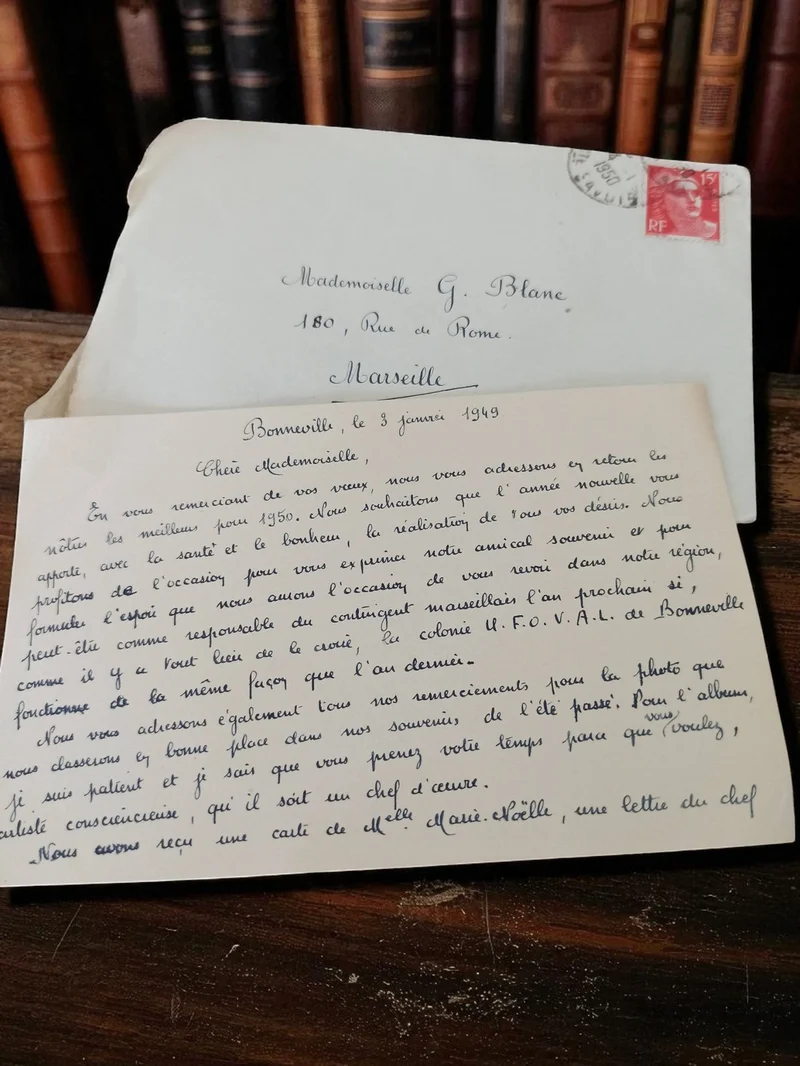 1950
SAVOIE
15F
RF
Mademoiselle G. Blanc
180, Rue de Rome.
Marseille
Bonneville, le 3 janvier 1949
Chère Mademoiselle,
En vous remerciant de vos vœux, nous vous adressons en retour les
nôtres les meilleurs pour 1950. Nous souhaitons que l'année nouvelle vous
apporte, avec la santé et le bonheur, la réalisation de tous vos désirs. Nous
profitons de l'occasion pour vous exprimer notre amical souvenir et pour
formuler l'espoir que nous aurons l'occasion de vous revoir dans notre région,
peut-être comme responsable du contingent marseillais l'an prochain si,
comme il y a tout lieu de le croire, la colonie U.F.O.V.A.L. de Bonneville
fonctionne de la même façon que l'an dernier.
Nous vous adressons également tous nos remerciements pour la photo que
nous classerons en bonne place dans nos souvenirs de l'été passé. Pour l'album,
je suis patient et je sais que vous prenez votre temps parce que vous voulez,
artiste consciencieuse, qu'il soit un chef d'œuvre.
Nous avons reçu une carte de Melle Marie-Noëlle, une lettre du chef